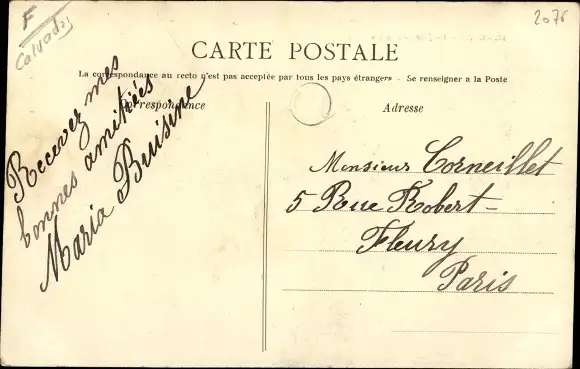 F
Calvados
2076
CARTE POSTALE
La correspondance au recto n'est pas acceptée par tous les pays étrangers - Se renseigner a la Poste
Correspondance
Adresse
Recevez mes
bonnes amitiées
Maria Buisine
Monsieur Corneillet
5 Rue Robert-
Fleury
Paris